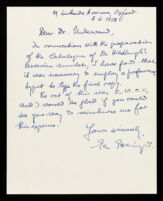 Oxford
Dear Dr. Underwood,
In connection with the preparation
of the Catalogue of Dr. Hildburgh's
Bavarian Amulets, I have found that
it was necessary to employ a professional
typist to type the final copy.
The cost of this was
and I would be glad if you could
see your way to reimburse me for
this expense.
Yours sincerely,